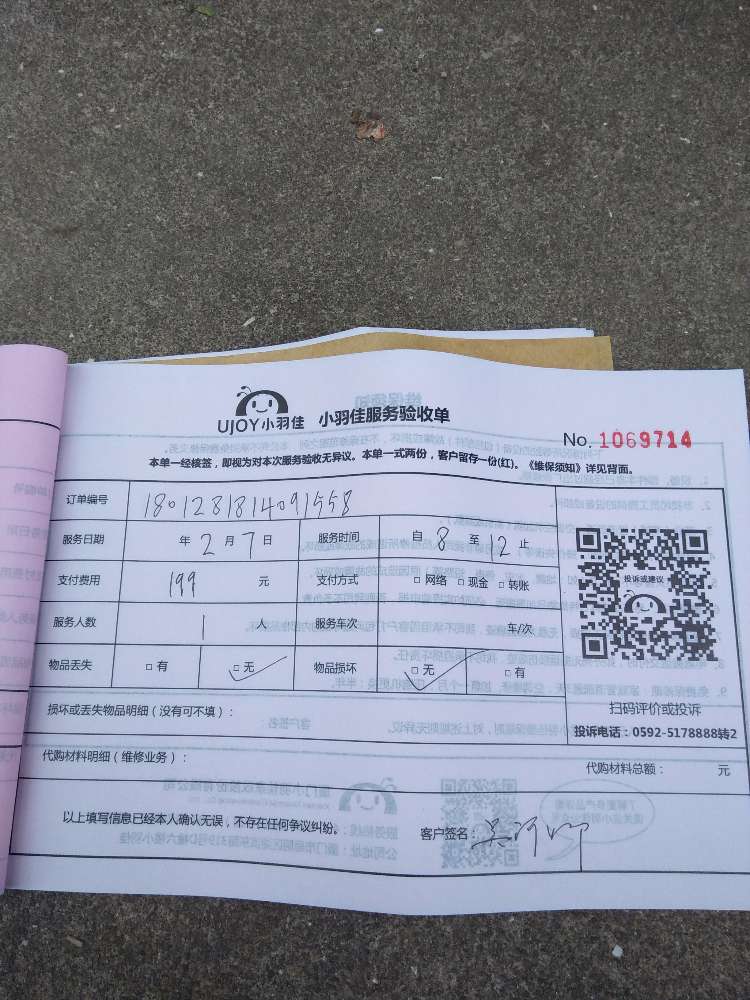 UJOY小羽佳 小羽佳服务验收单
No. 1069714
本单一经核签，即视为对本次服务验收无异议。本单一式两份，客户留存一份(红)。《维保须知》详见背面。
订单编号 1801281814091558
服务日期 年 2 月 7 日 服务时间 自 8 至 12 止
支付费用 199 元 支付方式 □ 网络 □ 现金 □ 转账
服务人数 1 人 服务车次 车/次
物品丢失 □ 有 □ 无 物品损坏 □ 无 □ 有
投诉或建议
扫码评价或投诉
投诉电话：0592-5178888转2
损坏或丢失物品明细（没有可不填）：
代购材料明细（维修业务）： 代购材料总额： 元
以上填写信息已经本人确认无误，不存在任何争议纠纷。 客户签名：